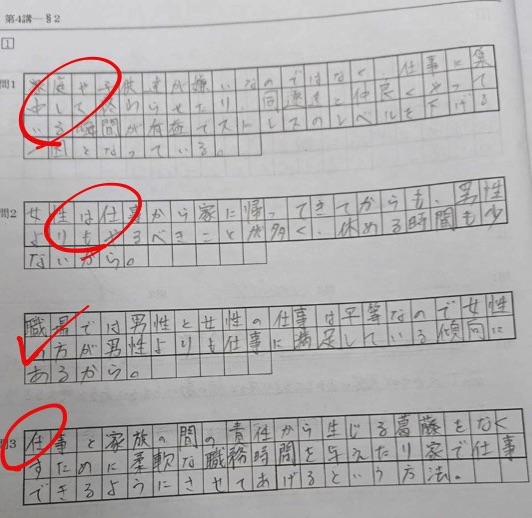 第4講—§2
1
問1
家庭や子供達が嫌いなのではなく、仕事に集
中して終わらせたり、同僚達と仲良くやって
いる時間が有益でストレスのレベルを下げる
となっている。
問2
女性は仕事から家に帰ってきてからも、男性
よりもやるべきことが多く、休める時間も少
ないから。
職場では男性と女性の仕事は平等なので女性
の方が男性よりも仕事に満足している傾向に
あるから。
問3
仕事と家族の間の責任から生じる葛藤をなく
すために柔軟な職務時間を与えたり家で仕事
できるようにさせてあげるという方法。